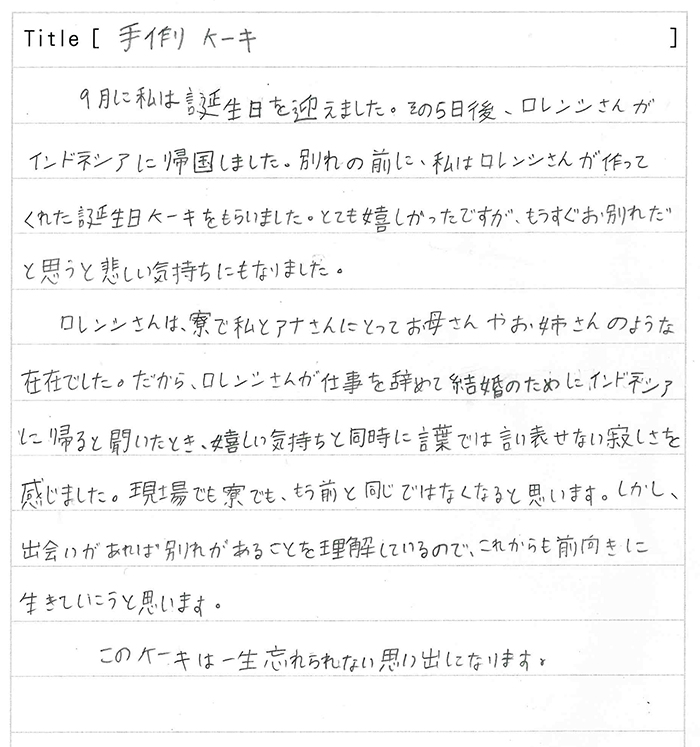 Title [ 手作り ケーキ ]
9月に私は誕生日を迎えました。その5日後、ロレンシさんが
インドネシアに帰国しました。別れの前に、私はロレンシさんが作って
くれた誕生日ケーキをもらいました。とても嬉しかったですが、もうすぐお別れだ
と思うと悲しい気持ちにもなりました。
ロレンシさんは、寮で私とアナさんにとってお母さんやお姉さんのような
在在でした。だから、ロレンシさんが仕事を辞めて結婚のためにインドネシア
に帰ると聞いたとき、嬉しい気持ちと同時に言葉では言い表せない寂しさを
感じました。現場でも寮でも、もう前と同じではなくなると思います。しかし、
出会いがあれば別れがあることを理解しているので、これからも前向きに
生きていこうと思います。
このケーキは一生忘れられない思い出になります。